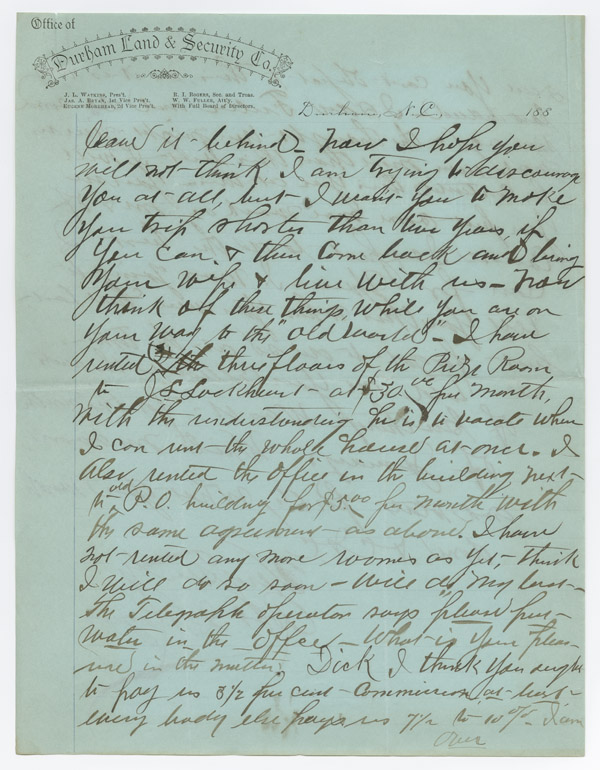 Office of
Durham Land & Security Co.
J. L. Watkins, Pres't. R. I. Rogers, Sec. and Treas.
Jas. A. Bryan, 1st Vice Pres't. W. W. Fuller, Att'y.
Eugene Morehead, 2d Vice Pres't. With Full Board of Directors.
Durham, N. C., 188
leave it behind – now I hope you
will not think I am trying to discourage
you at all, but I want you to make
your trip shorter than two years, if
you can. & then come back and bring
your wife & live with us – now
think of these things, while you are on
your way to the "old world" – I have
rented (3) the three floors of the Prize Room
to J S Lockheart at $30.00 per month,
with the understanding he is to vacate when
I can rent the whole house at once. I
also rented the office in the building next
to old P.O. building for $5.00 per month with
the same agreement as above. I have
not rented any more rooms as yet, think
I will do so soon – will do my best –
The Telegraph operator says "please put
water in the office – What is your pleas-
ure in the matter. Dick I think you ought
to pay us 3½ per cent commission, at least
every body else pays us 7½ to 10%. I am
Over